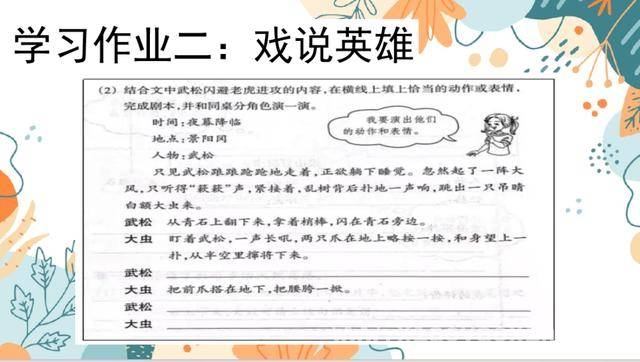 学习作业二：戏说英雄
(2) 结合文中武松闪避老虎进攻的内容，在横线上填上恰当的动作或表情，
完成剧本，并和同桌分角色演一演。
时间：夜幕降临
地点：景阳冈
人物：武松
我要演出他们
的动作和表情。
只见武松踉踉跄跄地走着，正欲躺下睡觉。忽然起了一阵大
风，只听得“簌簌”声，紧接着，乱树背后扑地一声响，跳出一只吊睛
白额大虫来。
武松 从青石上翻下来，拿着梢棒，闪在青石旁边。
大虫 盯着武松，一声长吼，两只爪在地上略按一按，和身望上一
扑，从半空里撺将下来。
武松
大虫 把前爪搭在地下，把腰胯一掀。
武松
大虫